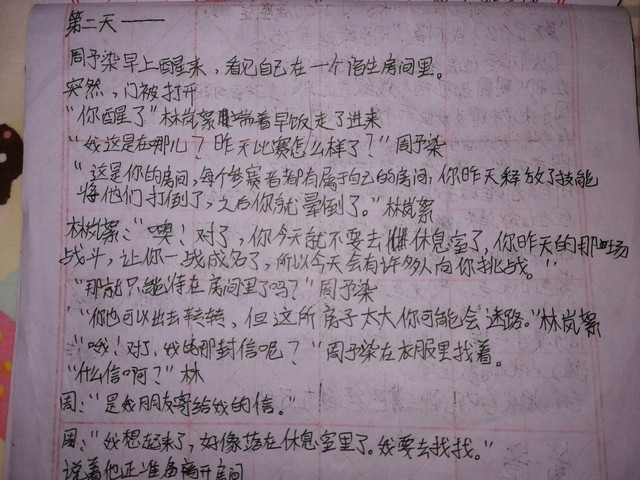 第二天——
周予染早上醒来，看见自己在一个陌生房间里。
突然，门被打开
“你醒了”林岚絮端着早饭走了进来
“我这是在哪儿？昨天比赛怎么样了？”周予染
“这是你的房间，每个参赛者都有属于自己的房间，你昨天释放了技能
将他们打倒了，之后你就晕倒了。”林岚絮
林岚絮：“噢！对了，你今天就不要去休息室了，你昨天的那场
战斗，让你一战成名了，所以今天会有许多人向你挑战。”
“那就只能待在房间里了吗？”周予染
“你也可以出去转转，但这所房子太大你可能会迷路。”林岚絮
“哦！对了，我的那封信呢？”周予染在衣服里找着。
“什么信啊？”林
周：“是我朋友寄给我的信。”
周：“我想起来了，好像落在休息室里了。我要去找找。”
说着他正准备离开房间